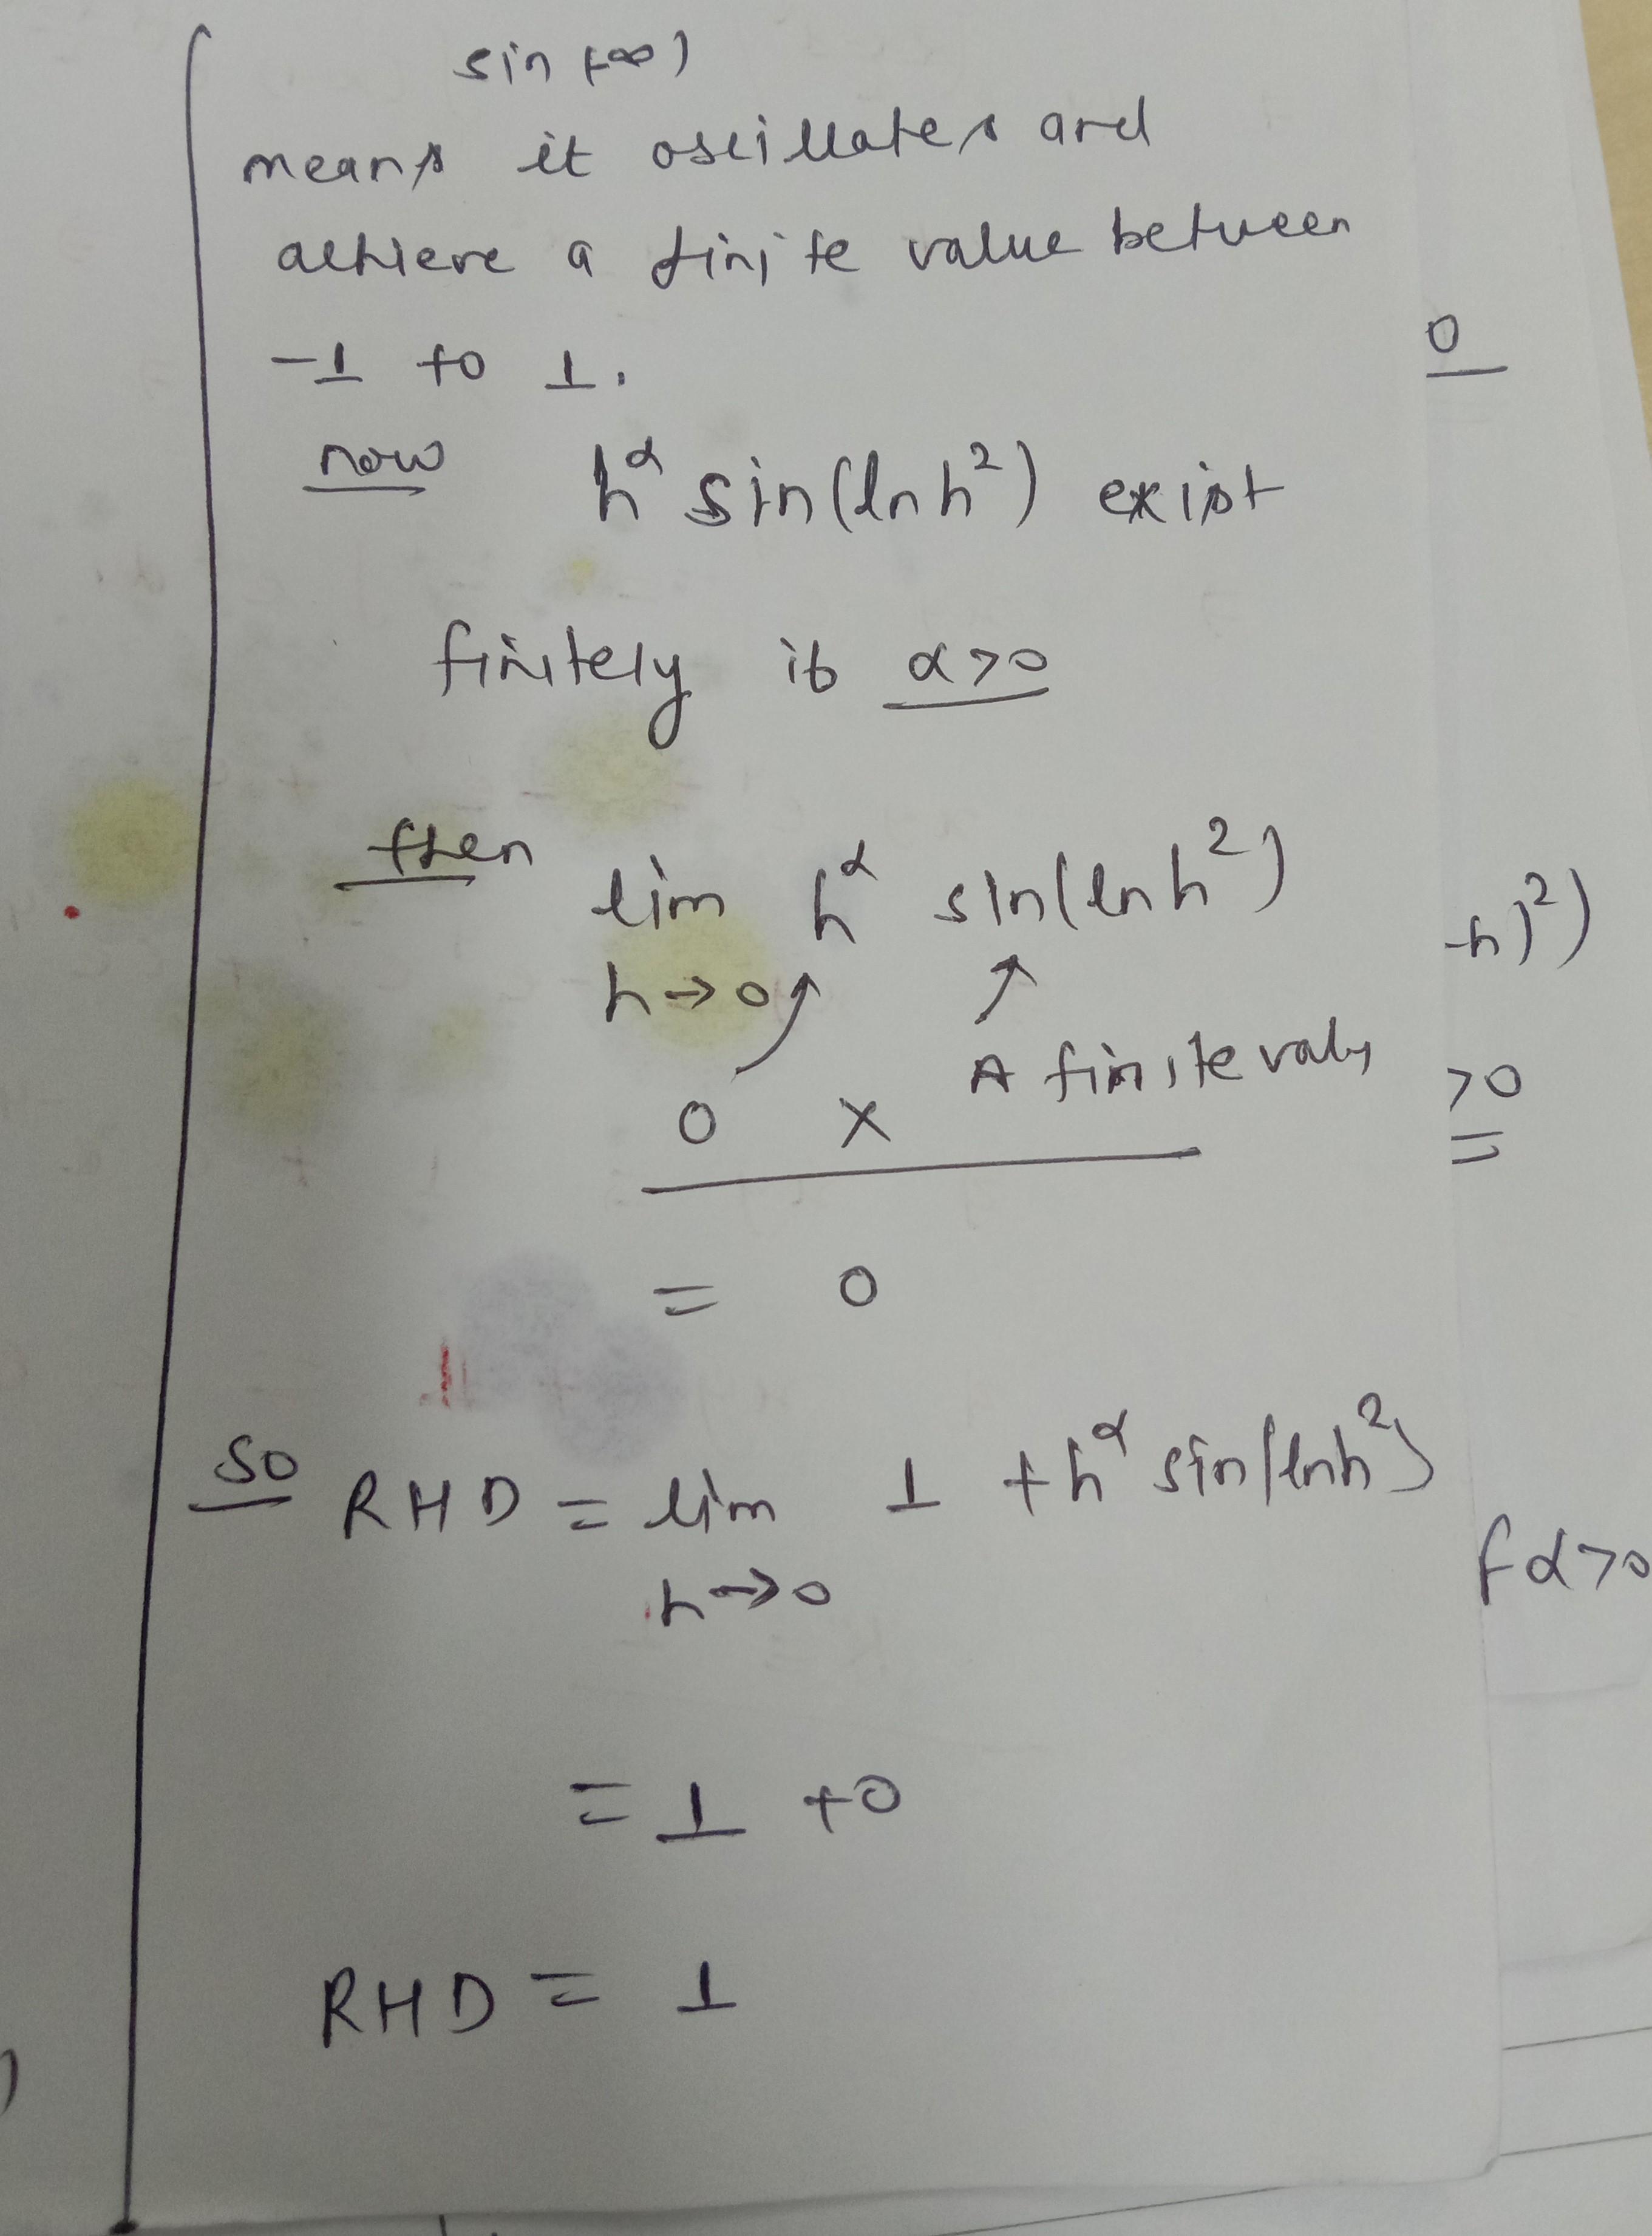 sin(-∞)
means it oscillates and
achieve a finite value between
-1 to 1.
0
now h^α sin(ln h²) exist
finitely if α>0
then lim h^α sin(ln h²)
-h)²)
h→0
A finite value
>0
0 ×
= 0
so RHD = lim 1 + h^α sin(ln h²)
h→0
f α>0
= 1 + 0
RHD = 1
)